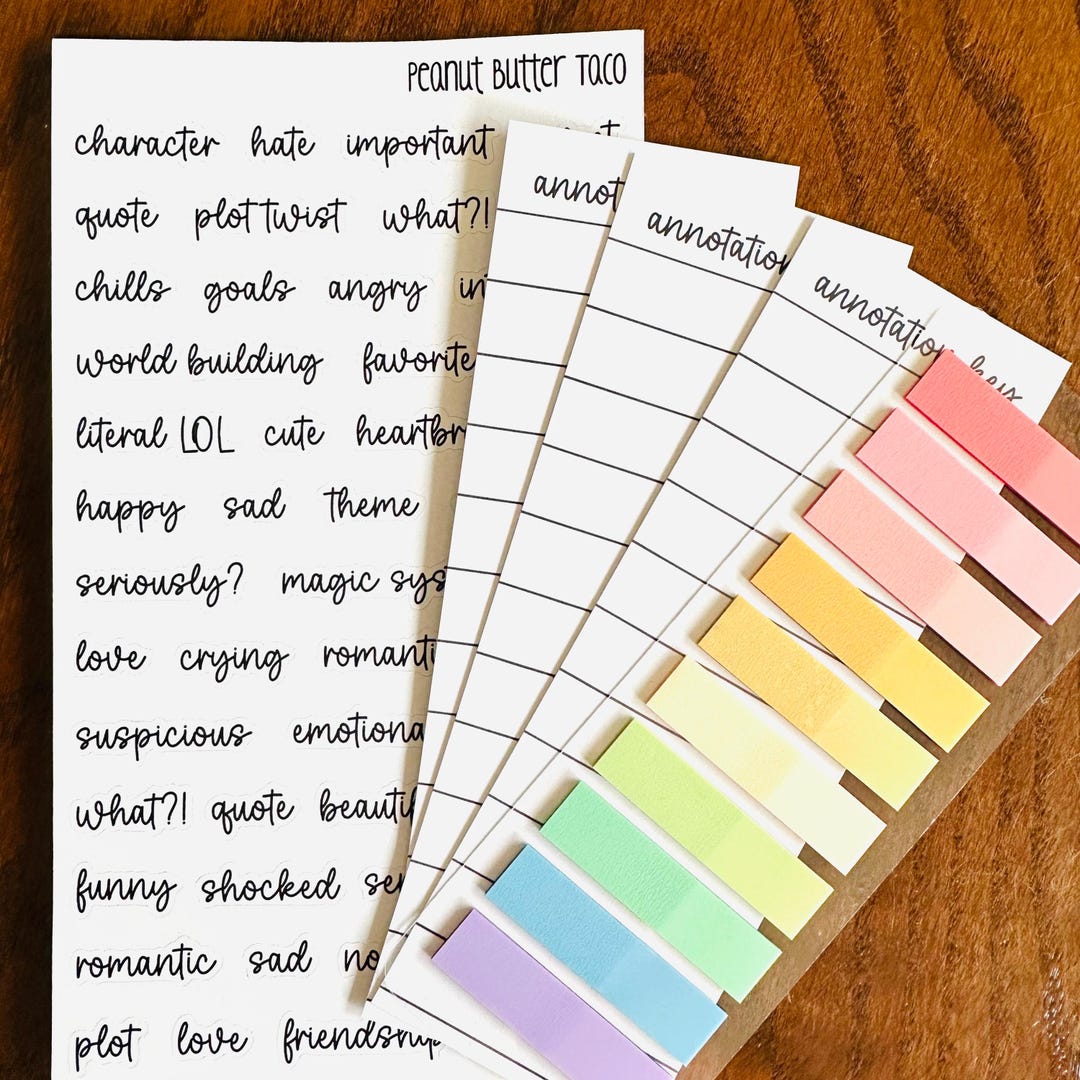 Peanut Butter Taco
character hate important
quote plot twist what?!
chills goals angry
world building favorite
literal LOL cute
happy sad theme
seriously? magic
love crying
suspicious
what?! quote
funny shocked
romantic sad
plot love friendship
annotation
annotation key